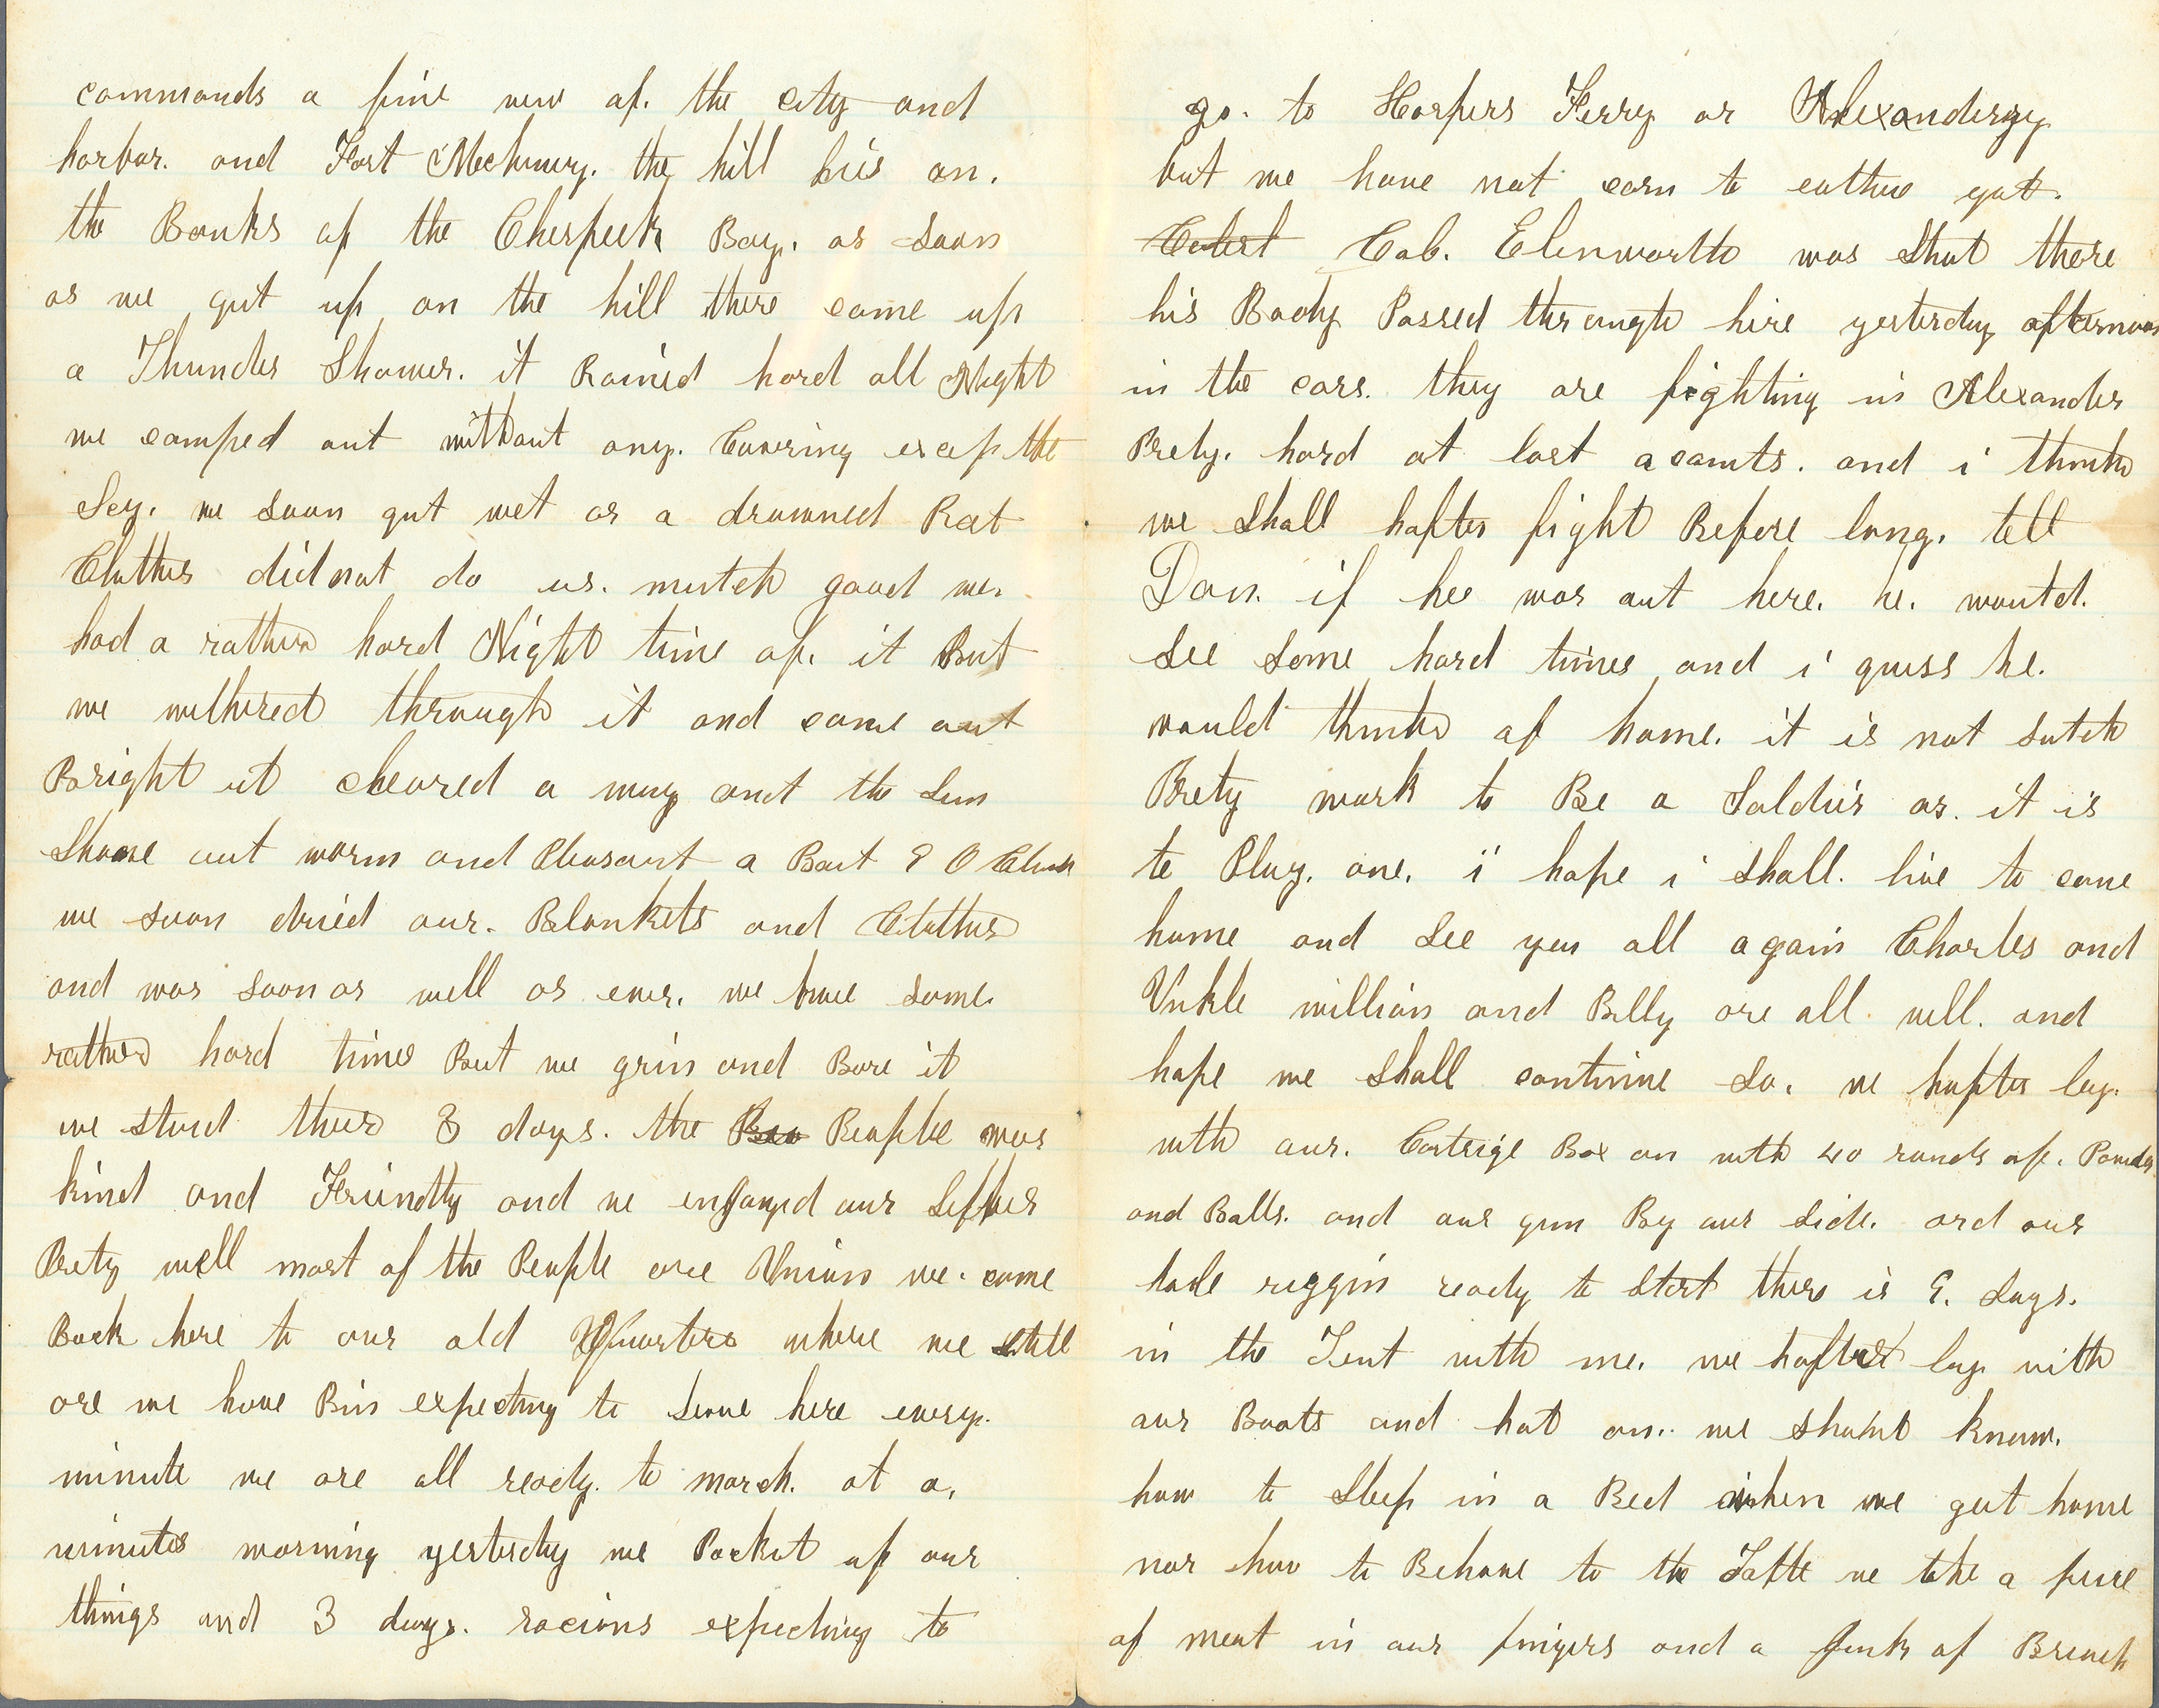 commands a fine vew of. the city and
harbar. and Fort Mchenry. the hill liis on.
the Banks of the Chespeek Bay. as Soon
as we gut up on the hill there came up
a Thunder Shower. it Rained hard all Night
we camped out without any. Cuvring excep the
Sey. we Soon gut wet as a drowned Rat
Cluthes did not do us. mutch good we.
had a rather hard Night time of. it But
we wethered through it and came out
Bright it cleared a way and the Sun
Shone out worm and Pleasant a Bout 9 O Clock
we soon dried our. Blankets and Cluthes
and was soon as well as ever. we have some.
rather hard times But we grin and Bare it
we stud there 3 days. the Peo People was
kind and Friendly and we enjoyed our Selfves
Prety well most of the People are Union we. came
Back here to our old Quarters where we still
are we have Bin expecting to Leave here every.
minute we are all ready. to march. at a.
minutes worning yesterday we Packut up our
things and 3 days. racions expecting to
go. to Harpers Ferry or Alexanderyy
but we have not corn to eather yat.
Cab. Elenworth was Shut there
his Body Passed through hire yesterday afternoon
in the cars. they are fighting in Alexander
Prety. hard at last acounts. and i think
we Shall hafter fight Before long. tell
Dan. if hee was out here. he. would.
See Some hard times and i guess he.
would think of home. it is not Sutch
Prety work to Be a Soldier as. it is
to Play. one. i hope i Shall. live to come
home and See you all again Charles and
Unkle william and Billy are all well. and
hope we Shall continue So. we hafter lay.
with our. Cartrige Box on with 40 rounds of. Powder
and Balls. and our gun By our Side. and our
hole riggin ready to Start there is 9. Lays.
in the Tent with me. we hafter lay with
our Boots and hat on.. we shant know.
how to Sleep in a Bed when we get home
nor how to Behave to the Table we take a peice
of meat in our fingers and a Junk of Breach